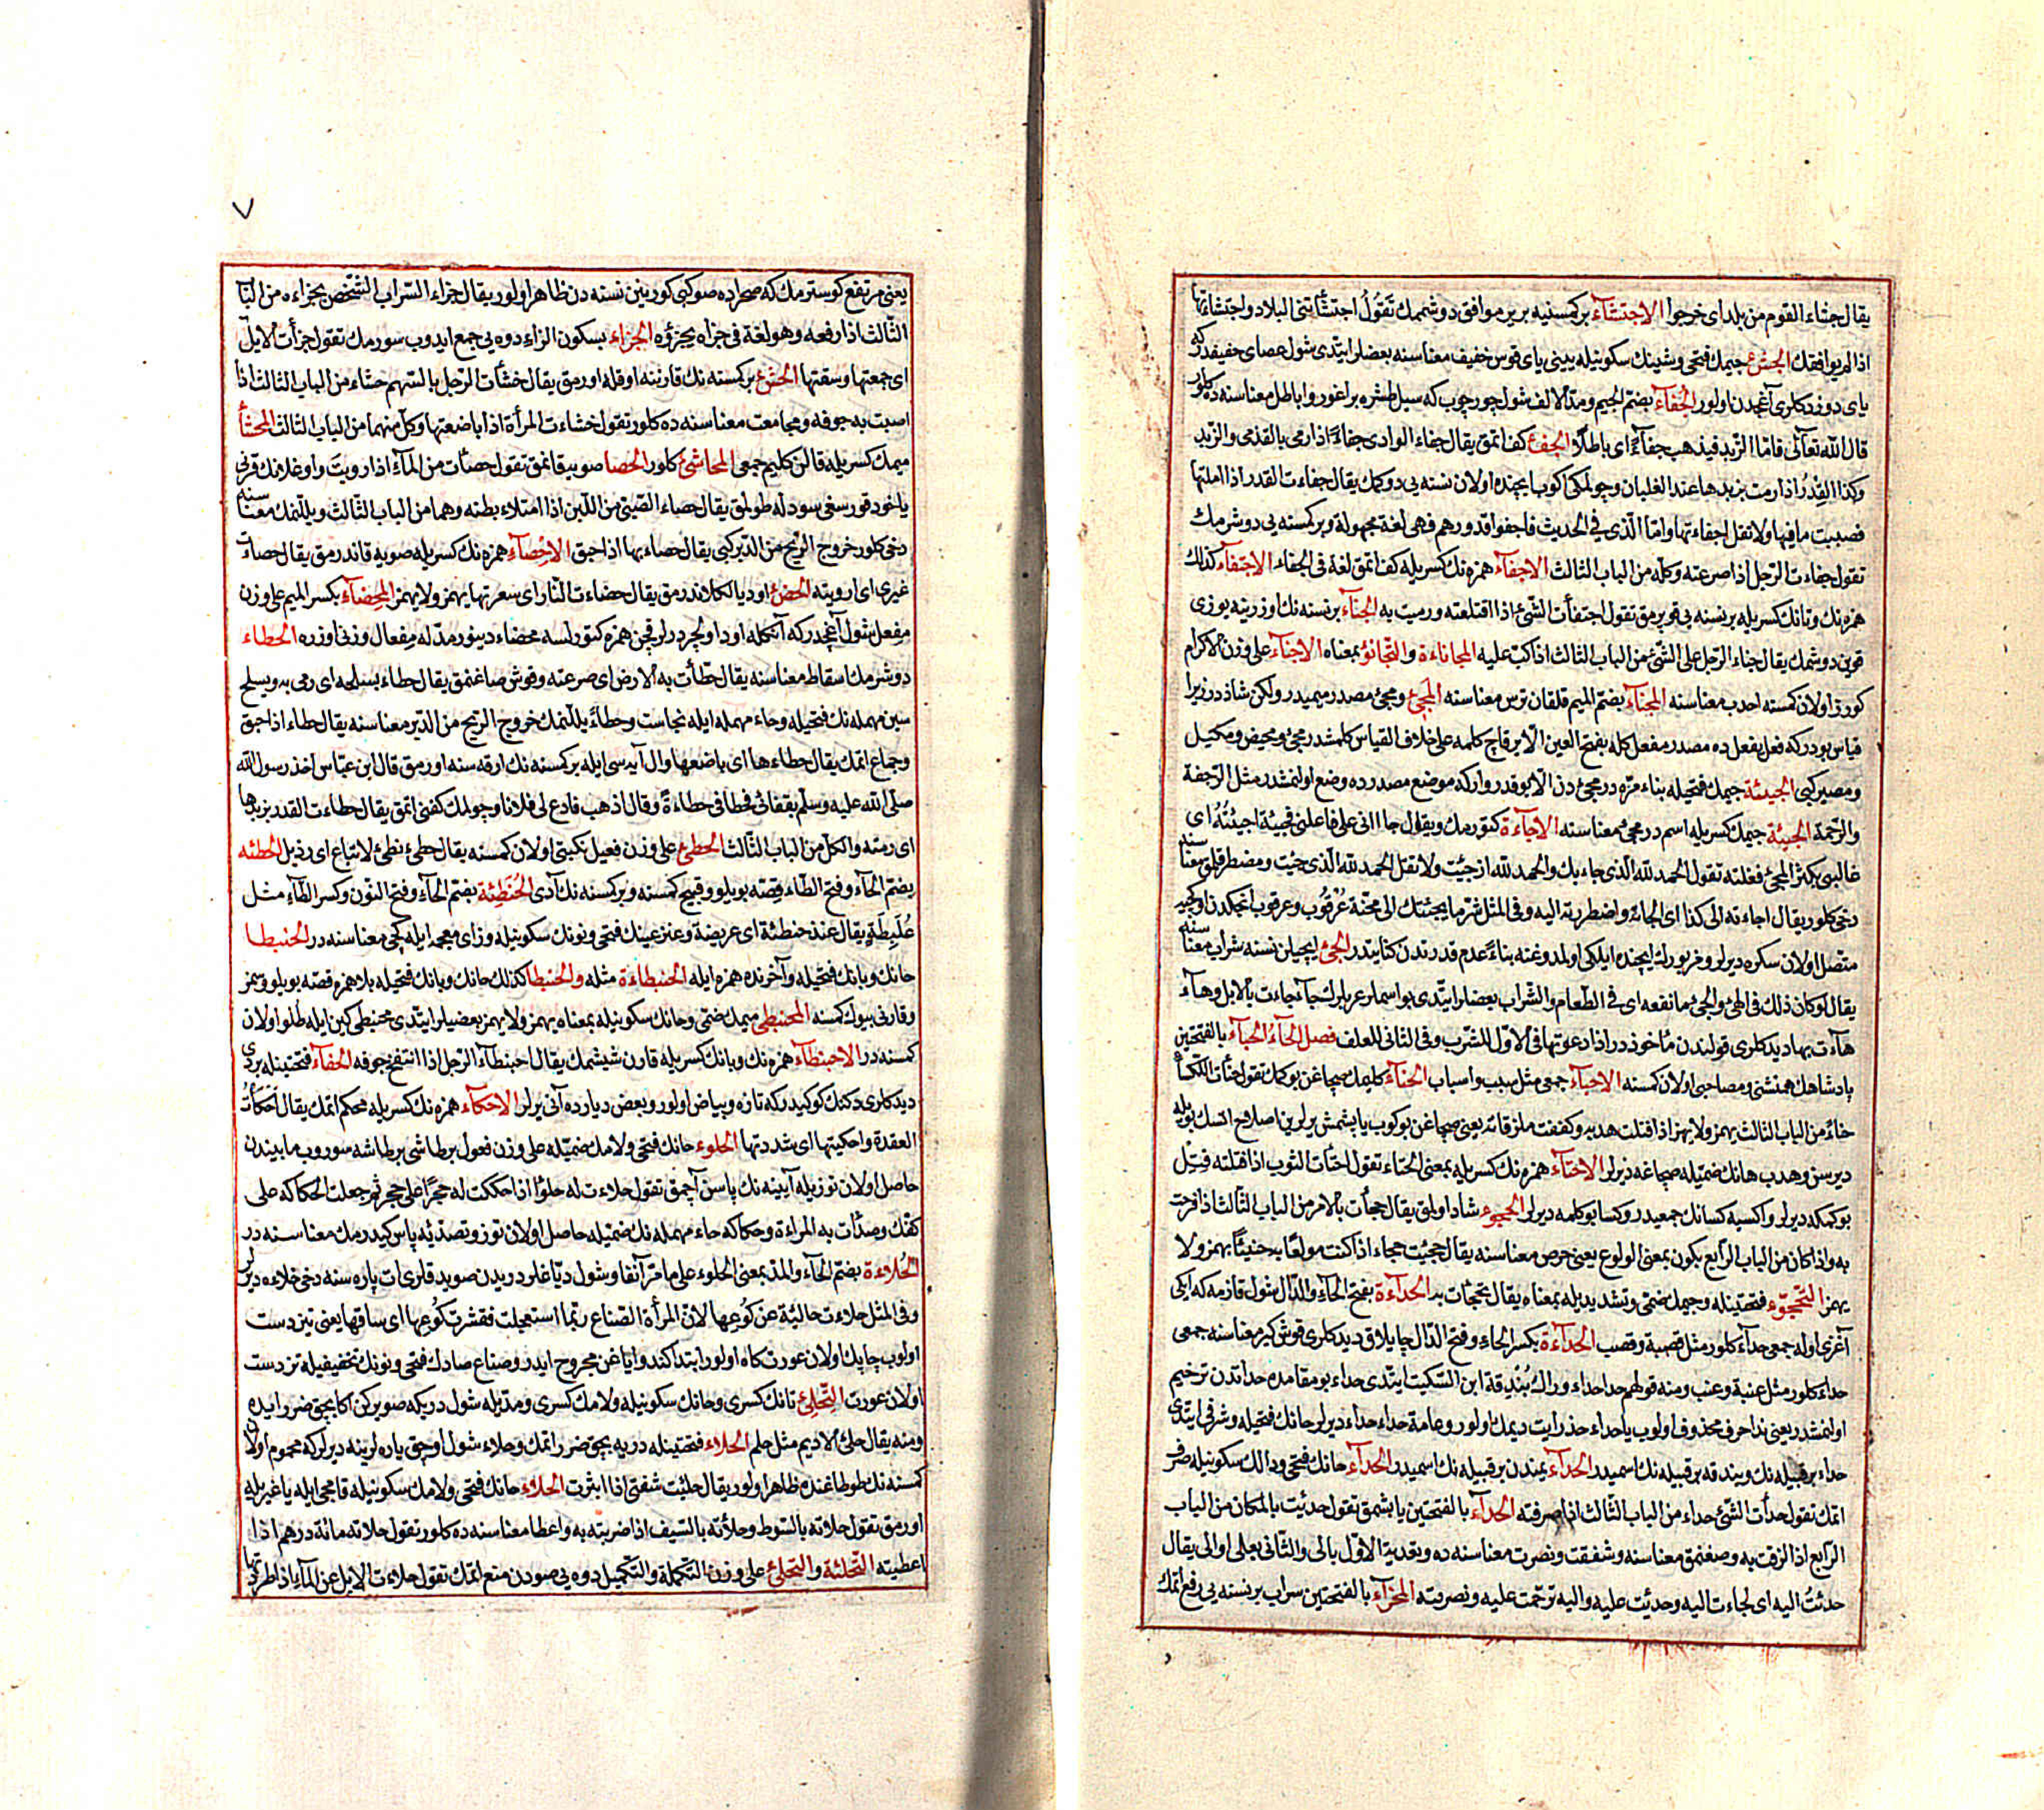 يقال جشاء القوم من بلد اى خرجوا الاجتشآء بر كمسنيه بر ير موافق دوشممك تَقُولُ اجتشأتنى البلاد واجتشاءتها
اذا لم يوافقك الجشئ جيمك فتحى وشينك سكونيله يينى ياى قوس خفيف معناسنه بعضلر ايتدى شول عصاى خفيفدركه
ياى دوزدكلرى آغجدن اولور الجُفآء بضم الجيم ومدّ الالف شول چورچوب كه سيل طشره براغور و اباطل معناسنه ده كلور
قال الله تعالى فامّا الزّبد فيذهب جفآءً اى باطلًا الجفئ كف اتمق يقال جفاء الوادى جفاءً اذا رمى بالقذى والزّبد
وكذا القِدْرُ اذا رمت بزبدها عند الغليان وچولمكى اكوب ايچنده اولان نسنه يى دوكمك يقال جفاءت القدر اذا املتها
فصببت ما فيها ولا تقل اجفاءتها وامّا الّذى فى الحديث فاجفوا قدورهم فهى لغة مجهولة وبر كمسنه يى دوشرمك
تقول جفاءت الرّجل اذا صرعته وكلّه من الباب الثالث الاجفآء همزه نك كسريله كف اتمق لغة فى الجفاء الاجتفآء كذلك
همزه نك وتانك كسريله بر نسنه يى قوپرمق تقول اجتفأت الشّئ اذا اقتلعته ورميت به الجنآء بر نسنه نك اوزرينه يوزى
قوين دوشمك يقال جناء الرّجل على الشّئ من الباب الثالث اذا كبّ عليه المجاناءة والتّجانؤ بمعناه الاجنآء على وزن الاكرام
كوزر اولان كمسنه احدب معناسنه المجنآء بضمّ الميم قلقان ترس معناسنه المجئ ومجئ مصدر ميميدر ولكن شاذدر زيرا
قياس بودركه فعل يفعل ده مصدر مفعل كله بفتح العين الّا بر قاچ كلمه على خلاف القياس كلمشدر مجئ ومحيض ومكيل
ومصير كبى الجيئة جيمك فتحيله بناء مرّه در مجئ دن الّا بو قدر واركه موضع مصدرده وضع اولنمشدر مثل الرّجفة
والرّحمة الجيئة جيمك كسريله اسمدر مجئ معناسنه الاجآءة كتورمك ويقول جاانى على فاعلنى فجيئة اجيئُهُ اى
غالبنى بكثرة المجئ فغلبته تقول الحمد لله الّذى جاء بك والحمد لله اذ جيئت ولا تقل الحمد لله الّذى جئت ومضطر قلمق معناسنه
دخى كلور يقال اجاءته الى كذا اى الجأته واضطررته اليه وفى المثل شرّ ما يجيئك الى مخّة عُرْقُوب وعرقوب انجكدن اوكچيه
متّصل اولان سكره ديرلر
يقال لو كان ذلك فى الهئ والجئ ما نفعه اى فى الطّعام والشّراب بعضلر ايتدى بو اسملر عربلرك جآجاءت بالابل وهآء
هآءت بها ديدكلرى قولندن مأخوذدر اذا دعوتها فى الاوّل للشّرب وفى الثانى للعلف فصل الحآء الحبآء بالفتحتين
پادشاهك همنشنى ومصاحبى اولان كمسنه الاحبآء جمعى مثل سبب واسباب الحتآء
خاءً من الباب الثالث يهمز ولا يهمز اذا فتلت هدبه وكففت
ديرسن وهدب هانك ضمّيله صچاغه ديرلر الاحتآء همزه نك كسريله بمعنى الحتاء تقول احتأت الثوب اذا فتلته فتل
بوكمكه ديرلر واكسيه كسانك جمعيدر وكسا بو كلمه ديرلر الحجوء شاد اولمق يقال حجأت بالامر من الباب الثالث اذا فرحت
به واذا كان من الباب الرّابع يكون بمعنى الولوع يعنى حرص معناسنه يقال حجيئت حجاء اذا كنت مولعًا به ضنيئًا يهمز ولا
يهمز التّحجوّء فتحتينله وجيمك ضمّى وتشديديله بمعناه يقال تحجّأت به الحدآءة بفتح الحآء والدّال شول قازمه كه ايكى
آغزى اوله جمعى حدآء كلور مثل قصبة وقصب الحدآءة بكسر الحاء وفتح الدّال چايلاق ديدكلرى قوش كبر معناسنه جمعى
حداء كلور مثل عنبة وعنب ومنه قولهم حدا حداء وراك بُنْدِقة ابن السّكيت ايتدى حداء بو مقامده حداتدن ترخيم
اولنمشدر يعنى ندا حرف محذوف اولوب يا حداء حذر ايت ديمك اولور وعامة حداء حداء ديرلر حانك فتحيله وشرقى ايتدى
حداء بر قبيله نك وبندقه بر قبيله نك اسميدر الحدآء يمندن بر قبيله نك اسميدر الحدآء حانك فتحى ودالك سكونيله صرف
اتمك تقول حدأت الشّئ حداء من الباب الثالث اذا صرفته الحدآء بالفتحتين يابشمق تقول حدئت بالمكان من الباب
الرّابع اذا لزقت به وصغنمق معناسنه وشفقت ونصرت معناسنه ده وتعديهٔ الاوّل بالى والثّانى بعلى او الى يقال
حدئتُ اليه اى لجاءت اليه وحدئت عليه واليه ترحّمت عليه ونصرته المحزآء بالفتحتين سراب بر نسنه يى رفع اتمك
٧
يعنى مرتفع كوسترمك كه صحراده صو كبى كورينن نسنه دن ظاهر اولور يقال حزاء السّراب الشّخص يحزاءه من الباب
الثّالث اذا رفعه وهو لغة فى حزاه يحزؤه الحزاء بسكون الزاء دوه يى جمع ايدوب سورمك تقول حزأت الابل
اى جمعتها وسقتها الحشئ بر كمسنه نك قارننه اوقله اورمق يقال حشأت الرّجل بالسّهم حشاء من الباب الثالث اذا
اصبت به جوفه ومجامعت معناسنه ده كلور تقول حشاءت المرأة اذا باضعتها وكلّ منهما من الباب الثّالث المحشأ
ميمك كسريله قالن كليم جمعى المحاشئ كلور الحصا صويه قانمق تقول حصئات من المآء اذا رويت واوغلانك قرنى
ياخود قورسغى سودله طولمق يقال حصاء الصّبىّ من اللّبن اذا امتلاء بطنه وهما من الباب الثّالث ويللنمك معناسنه
دخى كلور خروج الرّيح من الدّبر كبى يقال حصاء بها اذا حبق الاحصآء همزه نك كسريله صويه قاندرمق يقال حصاءت
غيرى اى ارويته الحضئ اود يالكلاندرمق يقال حضاءت النّار اى سعرتها يهمز ولا يهمز المحضآء بكسر الميم على وزن
مفعل شول آغجدر كه آنكله اود اولچردرلر قچن همزه كتورلسه محضاء دينور مدّ له مفعال وزنى اوزره الحطاء
دوشرمك اسقاط معناسنه يقال حطّأت به الارض اى صرعته وقوش صاغنمق يقال حطاء بسلحه اى رمى به ويسلح
سين مهمله نك فتحيله وحاء مهمله ايله نجاست وحطاءً يللنمك خروج الرّيح من الدّبر معناسنه يقال حطاء اذا حبق
وجماع اتمك يقال حطاءها اى باضعها وال آيه سى ايله بر كمسنه نك ارقه سنه اورمق قال ابن عبّاس اخذ رسول الله
صلّى الله عليه وسلّم بقفائى فحطانى حطاءةً وقال اذهب فادع لى فلانا وچولمك كفنى اتمق يقال حطاءت القدر بزبدها
اى رمته والكلّ من الباب الثّالث الحطئ على وزن فعيل يكبتى اولان كمسنه يقال حطئ نطئ لاتباع اى رذيل الحطئه
بضمّ الحآء وفتح الطّاء قصّه بويلو وقبيح كمسنه وبر كمسنه نك آدى الحُنَطِئة بضمّ الحآء وفتح النّون وكسر الطّآء مثل
عُلَبِطَة يقال عنذ حنطئة اى عريضة وعنز عينك فتحى ونونك سكونيله وزاى معجمه ايله كچى معناسنه در الحنبطا
حانك وبانك فتحيله وآخرنده همزه ايله الحنبطاءة مثله والحنبطا كذلك حانك وبانك فتحيله بلا همزه قصّه بويلو وسمز
وقارنى بيوك كمسنه المحبنطى ميمك ضمّى وحانك سكونيله بمعناه يهمز ولا يهمز بعضيلر ايتدى محبنطى كين ايله طلو اولان
كمسنه در الاحبنطآء همزه نك وبانك كسريله قارن شيشمك يقال احبنطآء الرّجل اذا انتفخ جوفه الحفآء فتحتينله بردى
ديدكلرى دكنك كوكيدركه تازه وبياض اولور وبعض ديارده آنى يرلر الاحكآء همزه نك كسريله محكم اتمك يقال اَحَكَأتُ
العقدة واحكيتها اى شددتها الحلوء حانك فتحى ولامك ضمّيله على وزن فعول بر طاشى بر طاشه سوروب مابيندن
حاصل اولان توزيله آيينه نك پاسن آچمق تقول حلاءت له حلوًا اذا حككت له حجرًا على حجر ثم جعلت الحكاكه على
كفّك وصدّأت به المراءة وحكاكه حاء مهمله نك ضمّيله حاصل اولان توز وتصدئه پاس كيدرمك معناسنه در
الحُلاءة بضمّ الحآء والمدّ بمعنى الحلوء على ما مرّ آنفا وشول دبّاغلر دريدن صويد قلرى ات پاره سنه دخى حلاءه ديرلر
وفى المثل حلاءت حالئة عن كُوعِها لانّ المرأة الصّناع ربّما استعجلت فقشرت كُوعِها اى ساقها يعنى تيز دست
اولوب چابك اولان عورت كاه اولور ابتدا كندو اياغن مجروح ايدر وصناع صادك فتحى ونونك تخفيفيله تز دست
اولان عورت التّحلِئ تانك كسرى وحانك سكونيله ولامك كسرى ومدّيله شول دريكه صويركن اكا بچق ضرر ايده
ومنه يقال حلئ الاديم مثل حلم الحلاء فتحتينله دريه بچق ضرر اتمك وحلاء شول اوچق ياره لرينه ديرلركه محموم اولان
كمسنه نك طوطاغنده ظاهر اولور يقال حلئت شفتى اذا بثرت الحلاء حانك فتحى ولامك سكونيله قامچى ايله يا غيريله
اورمق تقول حلاءته بالسّوط وحلأته بالسّيف اذا ضربته به واعطا معناسنه ده كلور تقول حلاته مائة درهم اذا
اعطيته التّحلئة والتحلئ على وزن التّكملة والتّكميل دوه يى صودن منع اتمك تقول حلاءت الابل عن المآء اذا طردتها